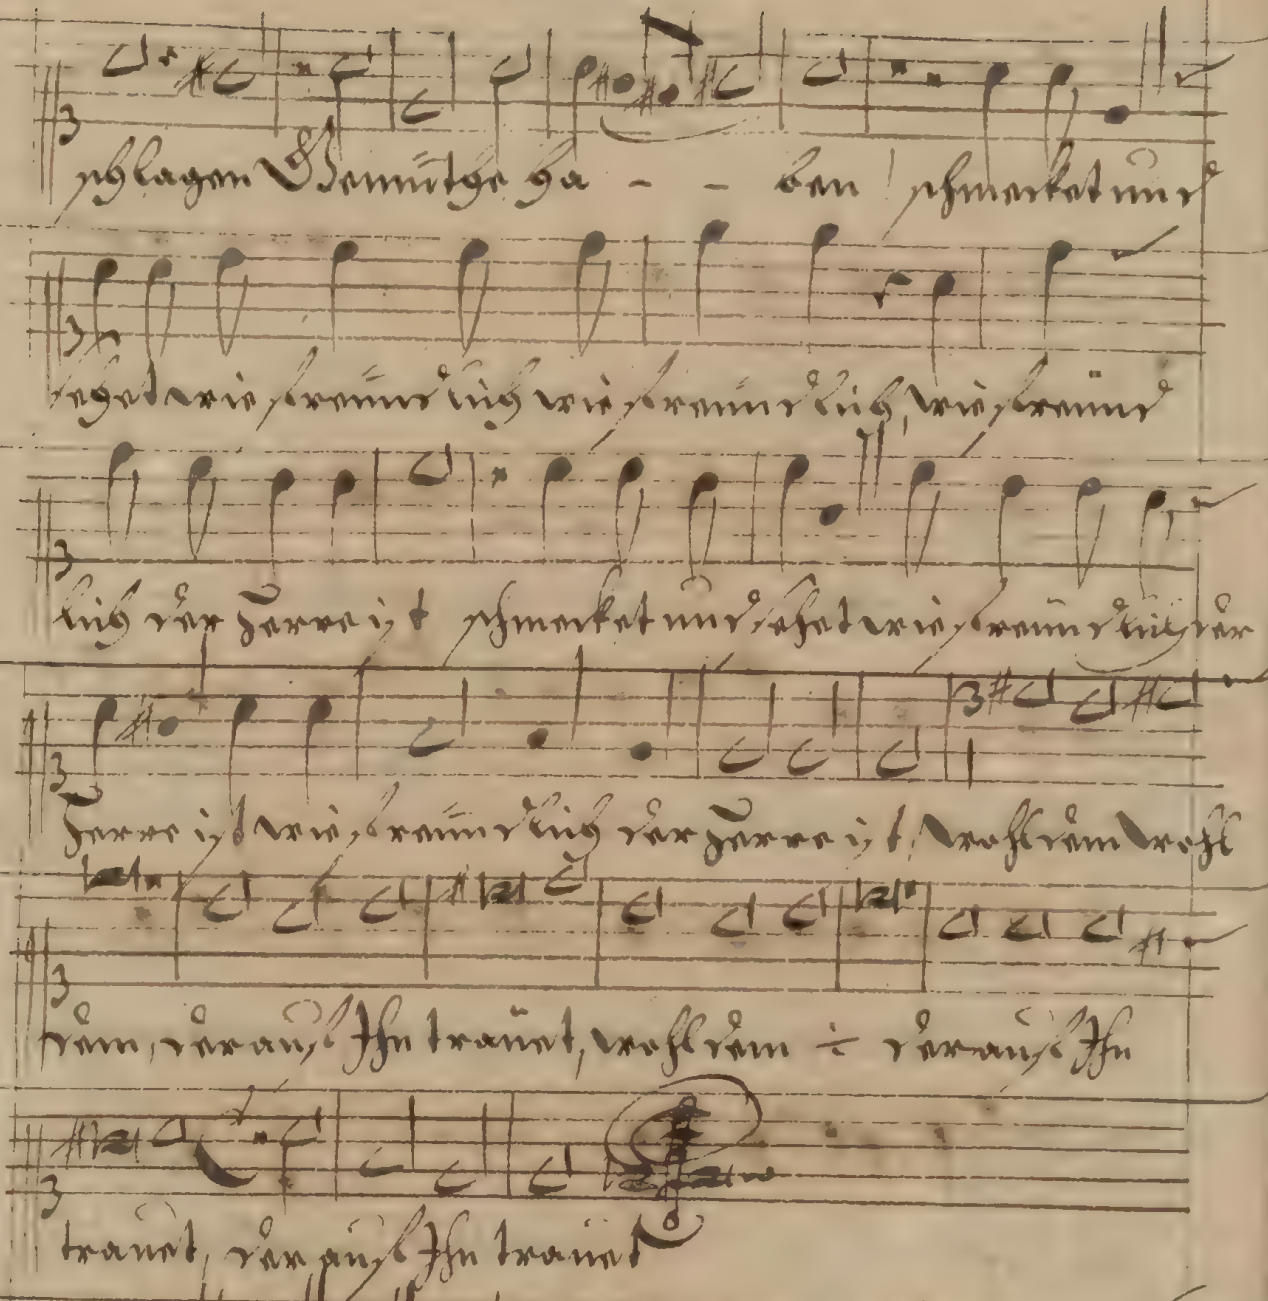 schlagen Gemüthe ha - - ben schmecket und
sehet wie freundlich wie freundlich, wie freund
lich der Herre ist schmecket und sehet wie freundlich der
Herre ist wie freundlich der Herre ist, wohl dem wohl
dem, der auf Ihn trauet, wohl dem ÷ der auf Ihn
trauet, der auf Ihn trauet